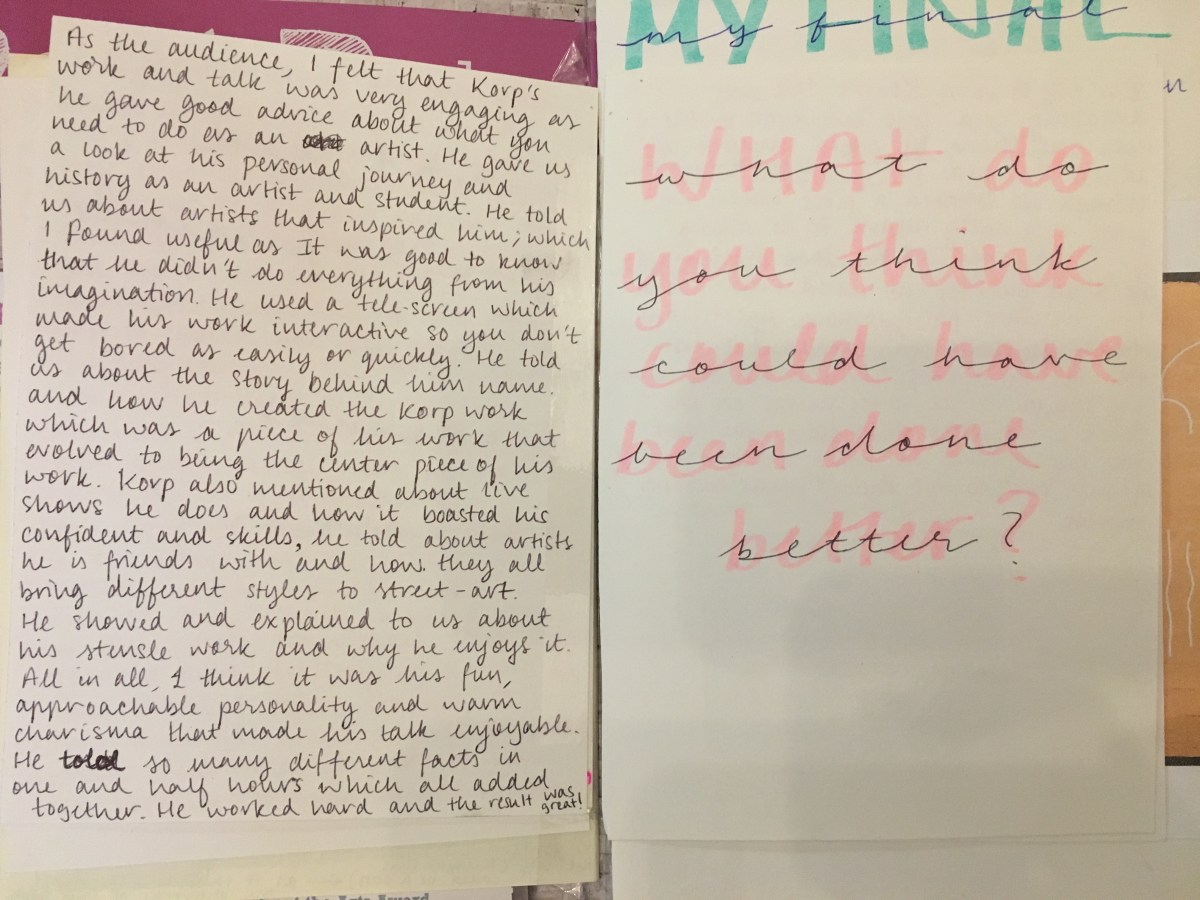 As the audience, I felt that Korp's
work and talk was very engaging as
he gave good advice about what you
need to do as an artist. He gave us
a look at his personal journey and
history as an artist and student. He told
us about artists that inspired him; which
I found useful as It was good to know
that he didn't do everything from his
imagination. He used a tele-screen which
made his work interactive so you don't
get bored as easily or quickly. He told
us about the story behind him name.
and how he created the Korp work
which was a piece of his work that
evolved to being the center piece of his
work. Korp also mentioned about live
shows he does and how it boasted his
confident and skills, he told about artists
he is friends with and how they all
bring different styles to street-art.
He showed and explained to us about
his stensle work and why he enjoys it.
All in all, I think it was his fun,
approachable personality and warm
charisma that made his talk enjoyable.
He told so many different facts in
one and half hours which all added
together. He worked hard and the result was
great!
MY FINAL
my final
WHAT do
what do
you think
you think
could have
could have
been done
been done
better?
better?